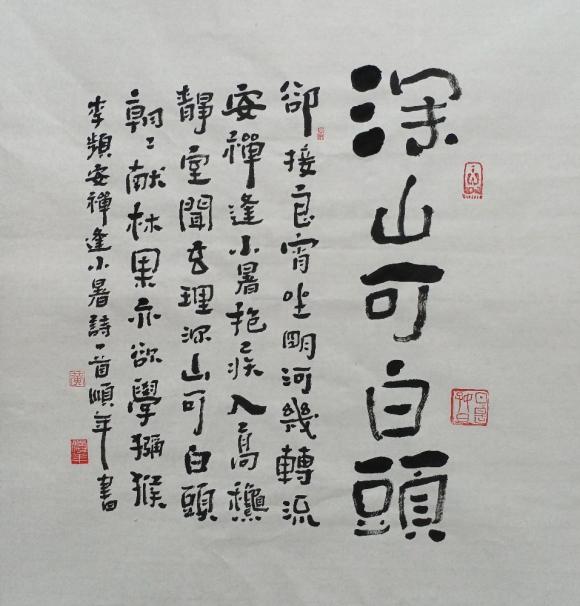 深山可白頭
卻接良宵坐明河幾轉流
安禪逢小暑抱疾入高龝
靜室聞玄理深山可白頭
朝〻献林果亦欲學獼猴
李頻安禪逢小暑詩一首順年書